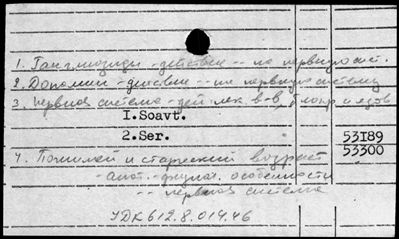 1. Ганглиозиды - действие -- на нервную сист.
2. Допамин - действие -- на нервную систему
3. Нервная система - дей. лек. в-в,
I.Soavt.
2.Ser. 53I89
53300
4. Пожилой и старческий возраст
- анат. - физиол. особенности
-- нервная система
УДК 612.8.014.46